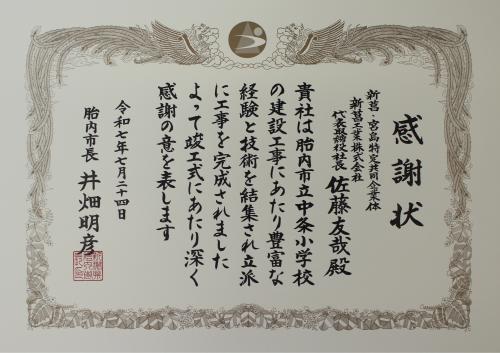 感謝状
新菖・宮島特定共同企業体
新菖工業株式会社
代表取締役社長 佐藤友哉殿
貴社は胎内市立中条小学校
の建設工事にあたり豊富な
経験と技術を結集され立派
に工事を完成されました
よって竣工式にあたり深く
感謝の意を表します
令和七年七月二十四日
胎内市長 井畑明彦